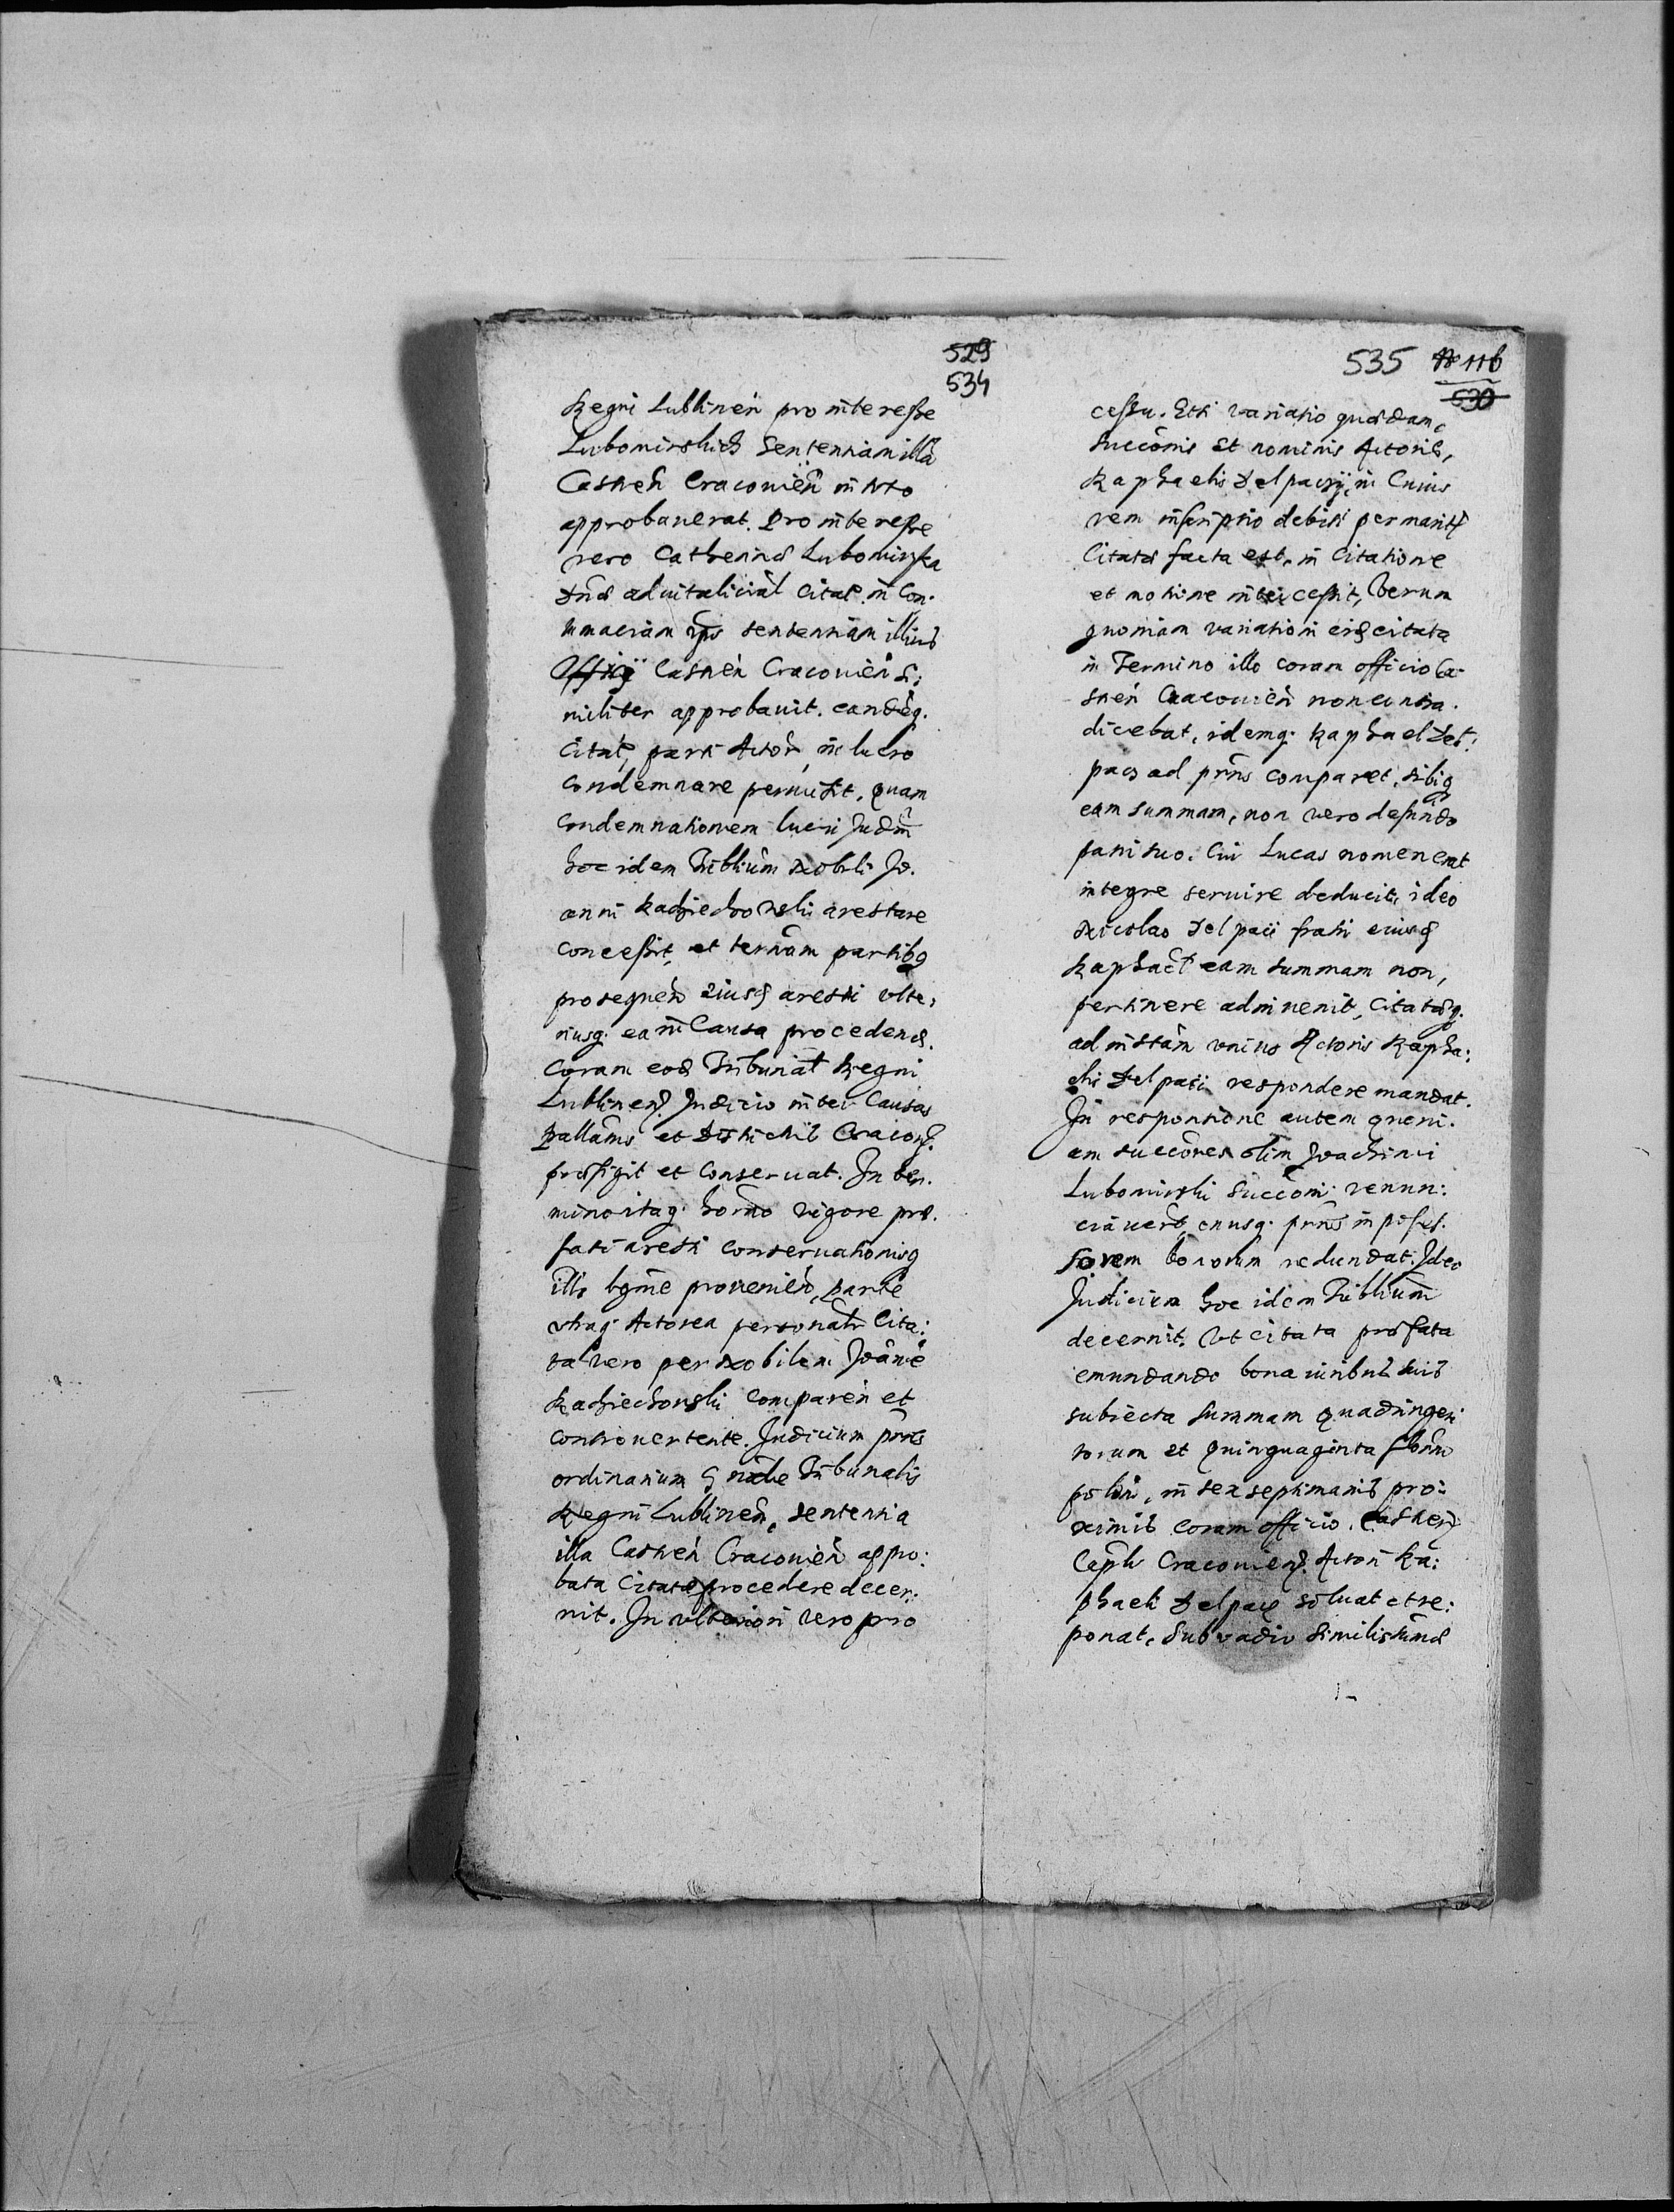 529
534
Regni Lublinen pro interesse
Lubomirskich Sententiam illa
Castren Cracouien in toto
approbauerat. Pro interesse
vero Catherinæ Lubomirska
Dnæ aduitalicial Citat in Con.
tumaciam ips sententiam illius
Officy Castren Cracouien si:
militer approbauit. eandeq.
Citat, parti Actor in lucro
condemnare permisit, quam
Condemnationem lucri Judm
hoc idem Triblium Nobili Jo.
anni Radziechowski arestare
concessit, et termam partibq
prosequen eiusd aresti vlte,
riusq. ea in Causa procedend.
Coram eod Tribunat Regni
Lublinen Judicio inter Causas
Pallams et Districtus Cracon
præfixit et conseruat. In ter.
minoitaq. horno vigore præ.
fati aresti conseruationisq
illi lgme prouenien, parte
vtraq. Actorea personatr Cita:
ta vero per Nobilem Joanne
Radziechowski comparen et
controuertente. Judicium pnns
ordinarium gnale Tribunalis
Regni Lublinen, sententia
illa Castren Cracouien appro:
bata Citatæ procedere decer:
nit. In vlteriori vero pro
535 116
530
cessu. Etsi variatio quædam,
succonis et nominis Actoris,
Raphaelis Delpacy, in Cuius
rem inscriptio debiti per marit
Citatæ facta est, in Citatione
et notione intercessit, Verum
quoniam variationi eid citata
in Termino illo coram officio Ca-
stren Cracouien non contra.
dicebat, idemq. Raphael Del:
pacy ad pnns comparet, sibiq
eam summam, non vero defuncto
patri suo, Cui Lucas nomen erat
integre seruire deducit, ideo
Nicolao Delpacii fratri eiusd
Raphael eam summam non,
pertinere adinuenit, Citatæq.
ad instam vnius Actoris Rapha:
elis Delpacii respondere mandat.
In responsione autem queni.
am succores olim Joachimi
Lubomirski succoni renun:
ciauert, cnusq. pnns in poses.
sorem bonorum redundat. Ideo
Judicium hoc idem Triblium
decernit, Vt citata præfata
emundando bona iuribus suis
subiecta summam Quadringen
torum et Quinquaginta florno
polon, in sex septimanis pro:
ximis coram officio, Castren
Capli Cracouien Actori Ra:
phaeli Delpacy soluat et re:
ponat, Sub vadio similis sumæ